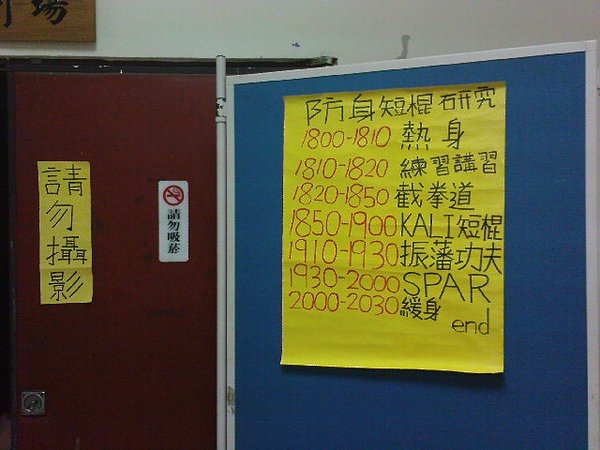 場
請勿攝影
請勿吸菸
防身短棍研究
1800-1810 熱身
1810-1820 練習講習
1820-1850 截拳道
1850-1900 KALI短棍
1910-1930 振藩功夫
1930-2000 SPAR
2000-2030 緩身
end